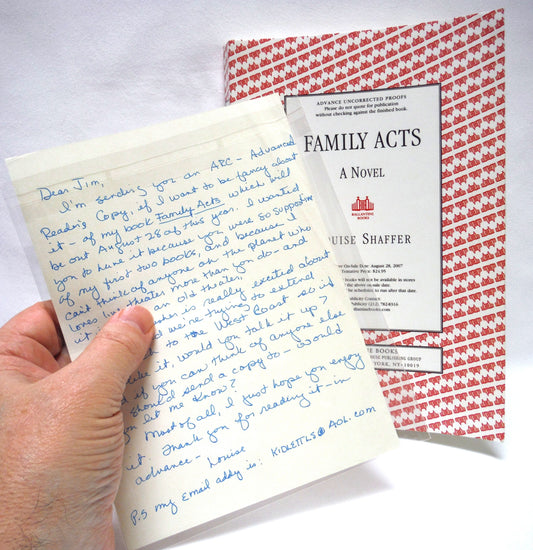 Dear Jim,
I'm sending you an ARC - Advanced
Reader's Copy, if I want to be fancy about
it - of my book Family Acts, which will
be out August 28 of this year. I wanted
you to have it because you were so supportive
of my first two books, and because I
can't think of anyone on the planet who
loves live theater more than you do - and
it an old theater.
her is really excited about
d we're trying to extend
to the West Coast so if
like it would you talk it up?
d if you can think of anyone else
should send a copy to - would
you let me know?
Most of all, I just hope you enjoy
it. Thank you for reading it - in
advance -
Louise
P.S my Email addy is: KIDLETTLS@AOL.com
ADVANCE UNCORRECTED PROOFS
Please do not quote for publication
without checking against the finished book.
FAMILY ACTS
A NOVEL
BALLANTINE
BOOKS
UISE SHAFFER
On-Sale Date: August 28, 2007
Tentative Price: $24.95
books will not be available in stores
the above on-sale date.
be scheduled to run after that date.
Publicity Contact:
Publicity (212) 782-8316
BOOKS
HOUSE PUBLISHING GROUP
YORK, NY 10019